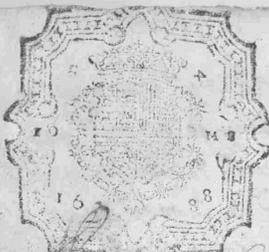 S 4
10 MS
16 88